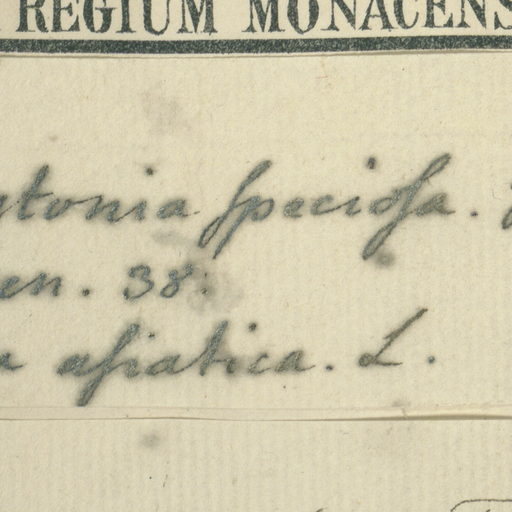 REGIUM MONACENS
gtonia speciosa.
en. 38.
a asiatica. L.